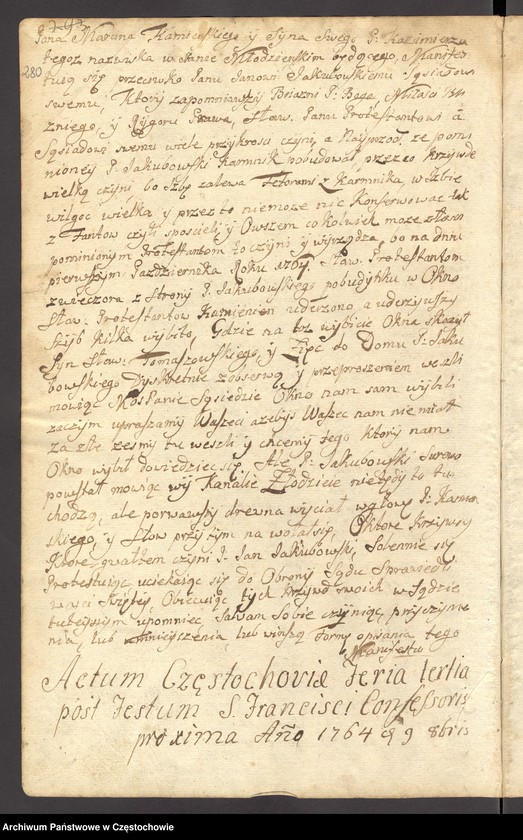 280
Pana Marcina Kamieńskiego y Syna Swego P. Kazimierza
tegoz nazwiska w stanie Młodzieńskim będącego, Manifes
tuią się przeciwko Panu Janowi Jakubowskiemu Sąsiadowi
swemu, Ktory zapomniawszy Boiazni P. Boga, Miłości Bli
zniego, y Rygoru Prawa, Sław. Panu Protestantowi a
Sąsiadowi swemu wiele przykrosci czyni, a Nayprzod ze pomi
nioney P. Jakubowski Karmnik pobudował, przez co krzywdę
wielką czyni bo Izbę zalewa Fetorami z Karmnika, w Izbie
wilgoc wielka y przez to niemoze nic Konserwowac tak
z Fantow czyli poscieli, y Owszem co kolwiek moze złosci
pominionym Protestantom to czyni y wyrządza, bo na dniu
pierwszym Pazdziernika Roku 1764. Sław. Protestantom
zwieczora z Strony P. Jakubowskiego pobudynku w Okno
Sław. Protestantow Kamieniem uderzono, a uderzywszy
Szyb kilka wybito, Gdzie na toz wybicie Okna
Syn Sław. Tomaszowskiego, y Zięc do Domu P. Jaku
bowskiego Dyskretnie z obserwą y przeproszeniem weszli
mowiąc Mospanie Sąsiedzie Okno nam sam wybili
zaczym upraszamy Waszeci azebys Waszec nam nie miał
za złe zesmy tu weszli y chcemy tego ktory nam
Okno wybił dowiedziec się, Ale P. Jakubowski Surowo
powstał mowiąc wy Kanalie Złodzieie
chodzą, ale porwawszy drewna wyciał w głowę P. Kamien
skiego, y Słow przytym na wołał się, O ktore krzywdy
Ktore gwałtem czyni P. Jan Jakubowski, Solennie się
Protestuiąc uciekaiąc się do Obrony Sądu Sprawiedli
wosci Swiętey, Obiecuiąc tych krzywd swoich w Sądzie
tuteyszym upomniec, Salwam Sobie czyniąc, przyczynie
nia, lub zmnieyszenia, lub winszą formę opisania tego
Manifestu
Actum Częstochoviæ Feria tertia
post Festum S. Francisci Confessoris
proxima Año 1764 9 8bris
Archiwum Państwowe w Częstochowie